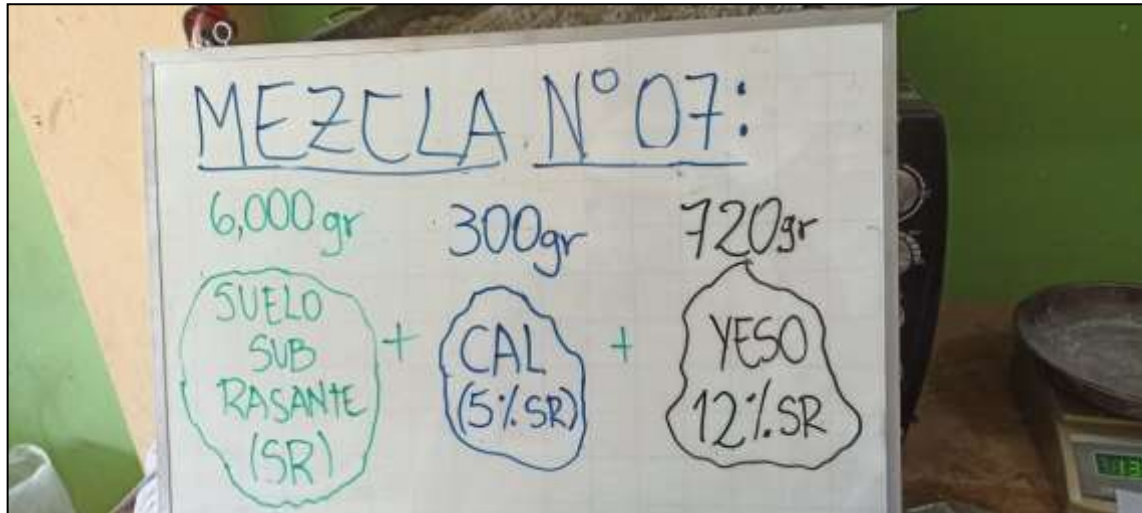 MEZCLA N° 07:
6,000 gr 300gr 720gr
SUELO
SUB
RASANTE
(SR)
+
CAL
(5% SR)
+
YESO
12% SR